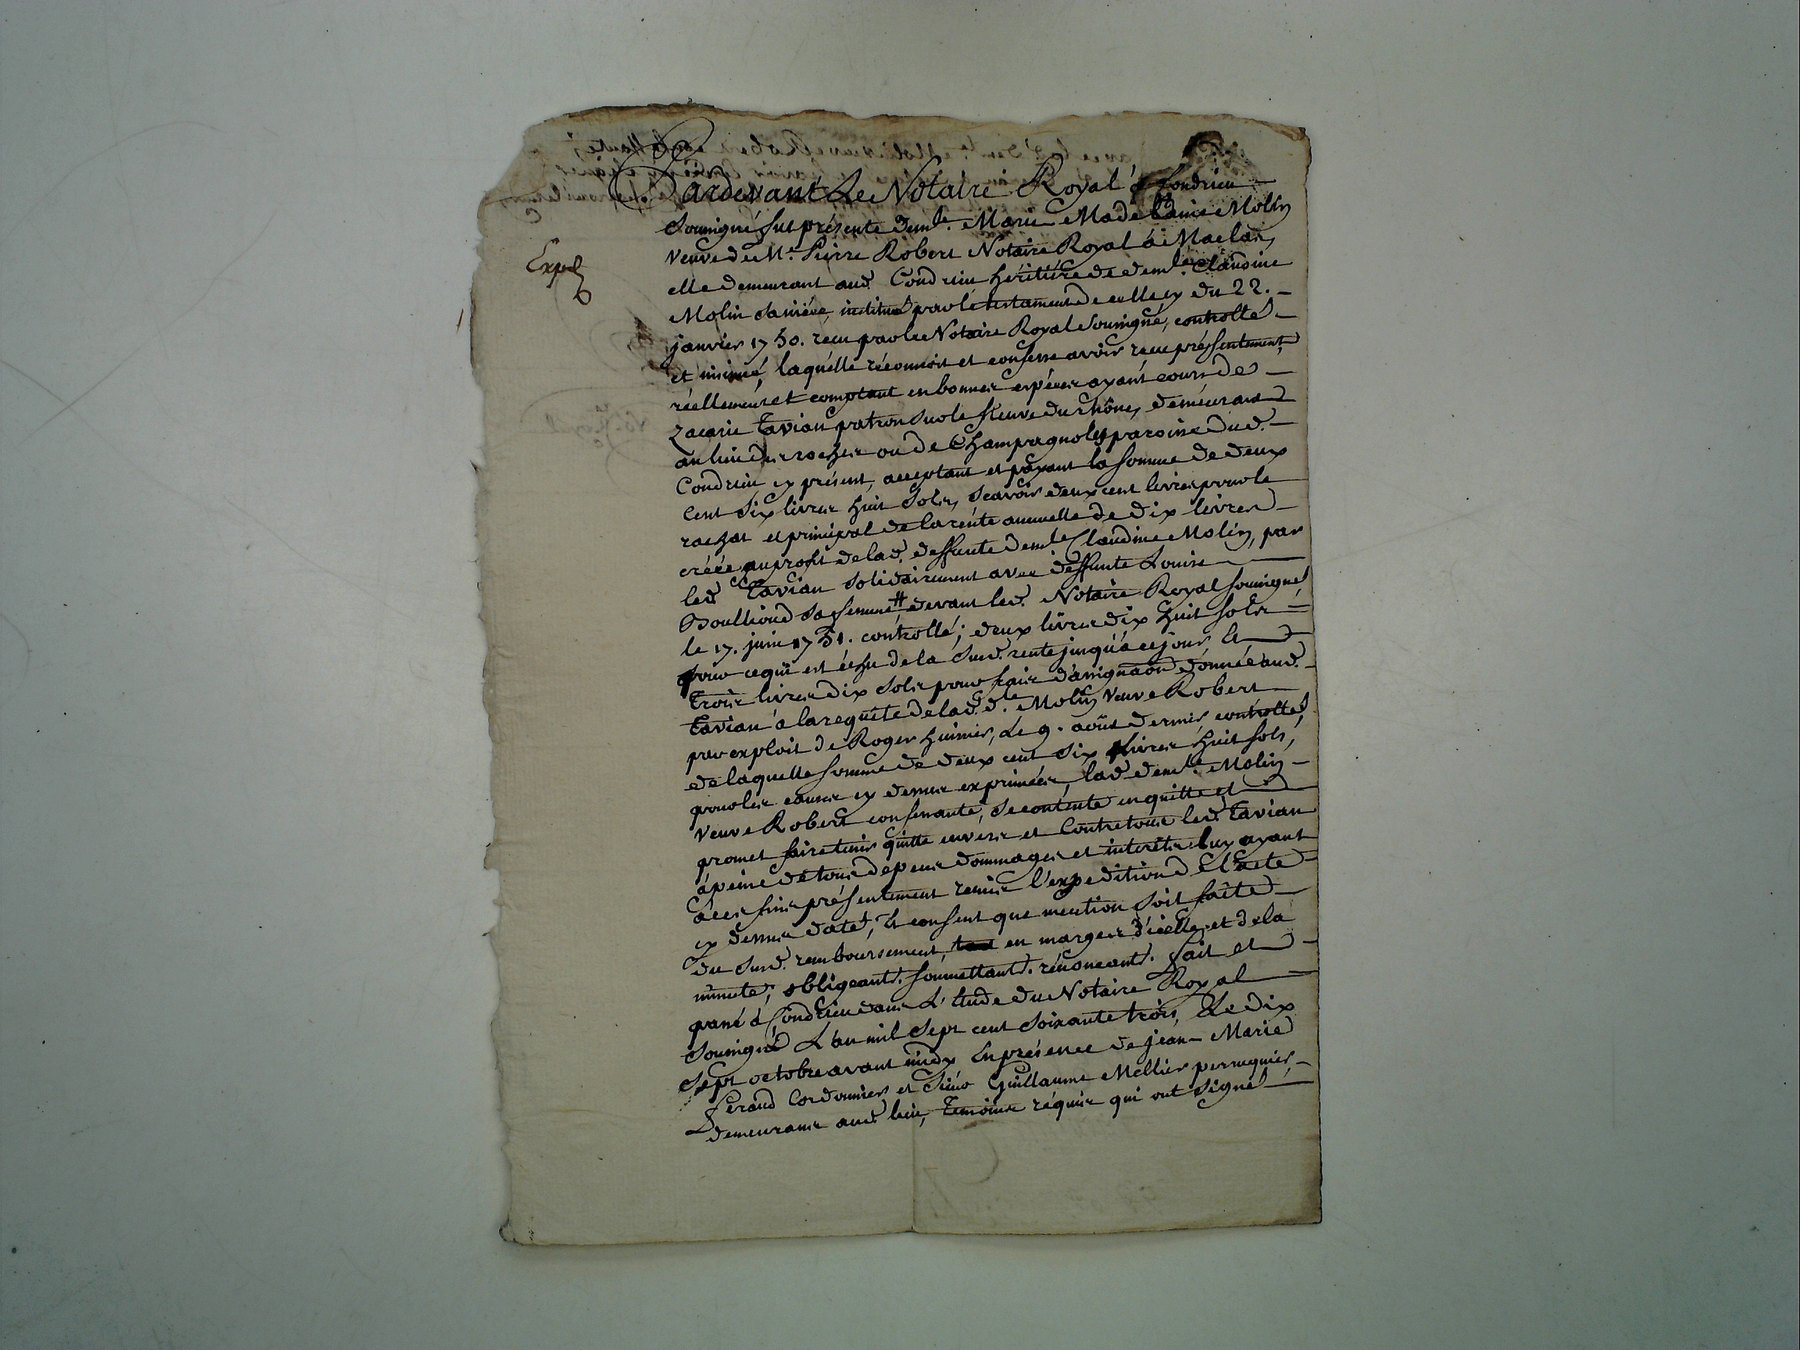 Expé
Pardevant Le Notaire Royal à Condrieu
Soussigné fut présente dem.lle Marie Madelaine Molin
veuve de M.e Pierre Robert Notaire Royal à Maclas,
elle demeurant aud. Condrieu héritiére de dem.lle Claudine
Molin sa niéce, instituée par le testament de celle cy du 22.
janvier 1750. recu par le Notaire Royal soussigné, controllé
et insinué, laquelle réconnoit et confesse avoir recu présentement,
réellement et comptant en bonnes espéces ayant cours de
Zacarie Tavian patron sur le fleuve du rhône, demeurant
au lieu des roches ou de Champagnole paroisse dud.
Condrieu cy présent, acceptant et payant la somme de deux
cent six livres huit sols, scavoir deux cent livres pour le
rachat et principal de la rente annuelle de dix livres
créée au profit de lad. deffunte dem.lle Claudine Molin, par
led. Tavian solidairement avec deffunte Louise
Boullioud sa femme # devant led. Notaire Royal soussigné
le 17. juin 1751. controllé; deux livres dix huit sols
pour ce qui est échu de la susd. rente jusqu'à ce jour, et
trois livres dix sols pour frais d'assignaôn donnée aud.
Tavian à la requête de lad. d.lle Molin veuve Robert
par exploit de Roger huissier, le 9. août dernier controllé,
de laquelle somme de deux cent six livres huit sols,
pour les causes cy dessus exprimées, lad. dem.lle Molin
veuve Robert consenante, se contente en quitte et
promet faire tenir quitte envers et contre tous led. Tavian
à peine de tous depens dommages et interêts luy ayant
à ces fins présentement remis l'expedition de l'acte
cy dessus daté, et consent que mention soit faite
du susd. remboursement, en marges d'icelle et de la
minute; obligeants. soumettants. rénonceants. fait et
passé à Condrieu dans l'étude du Notaire Royal
soussigné L'an mil sept cent soixante trois, le dix
sept octobre avant midy En présence de jean Marie
Ferand Cordonnier et Sieur Guillaume Mellier perruquier,
demeurans aud. lieu, Témoins réquis qui ont signé